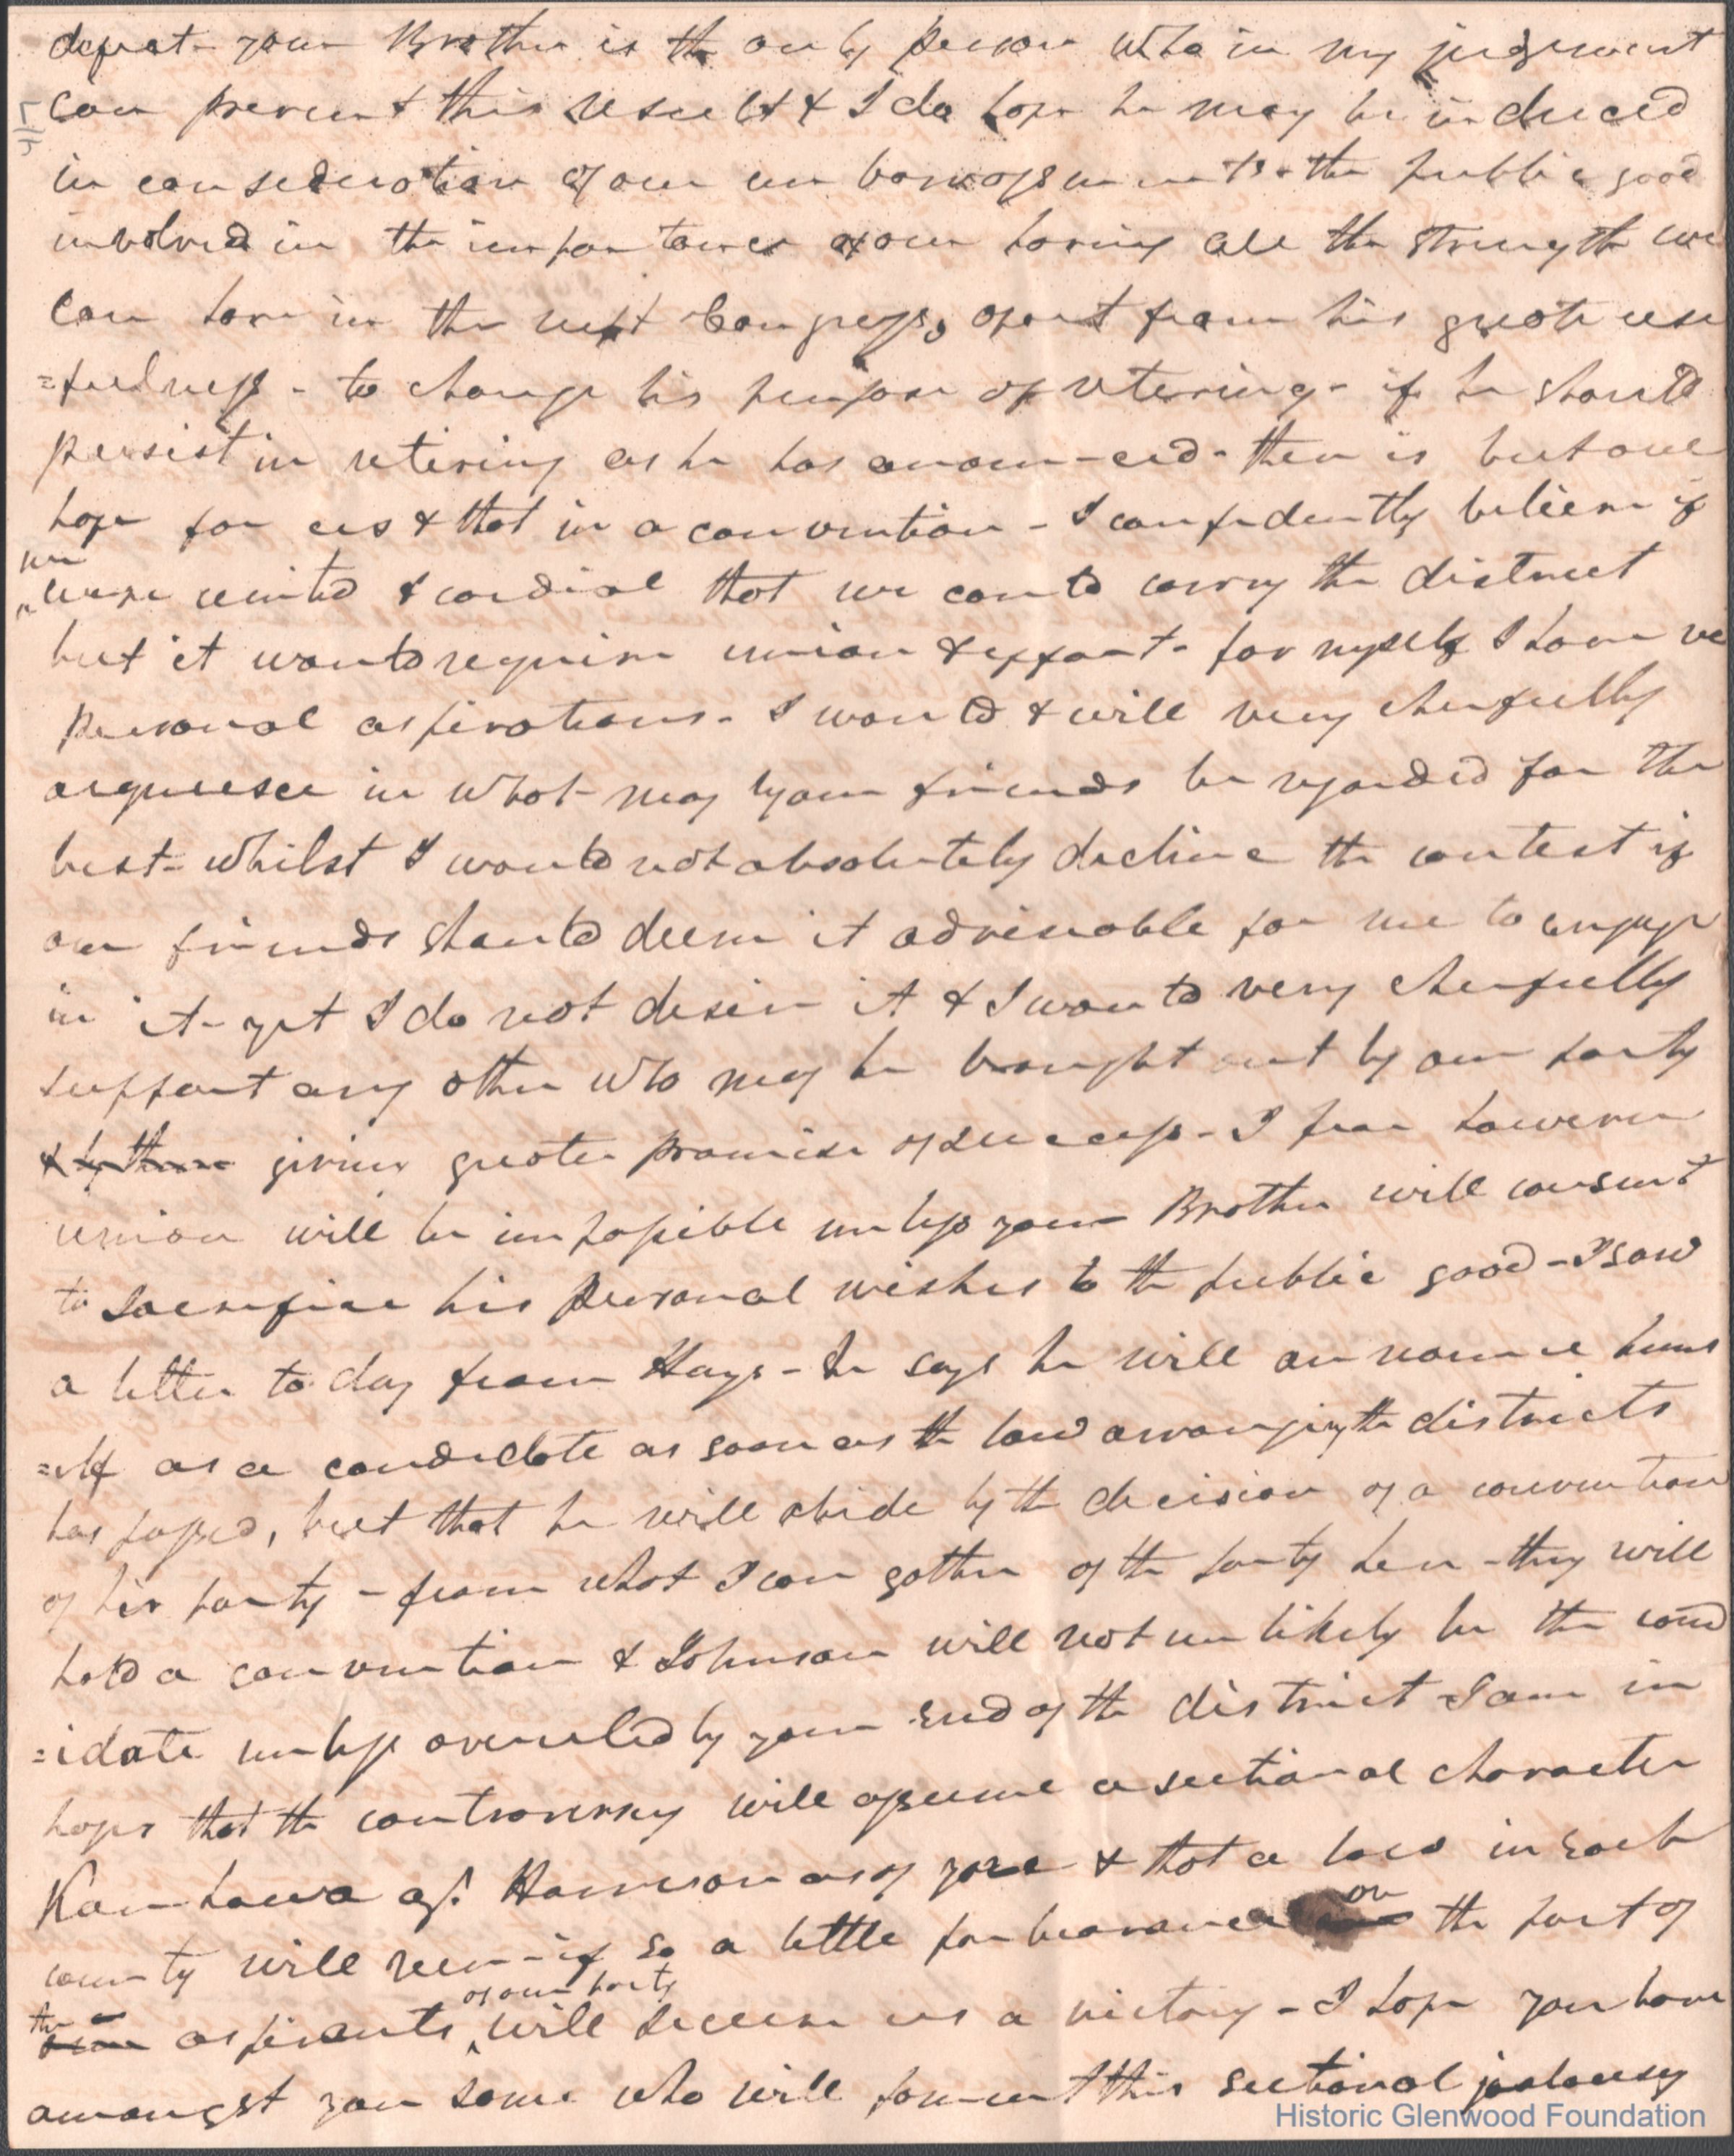 defeat - your Brother is the only person who in my judgment
can prevent this result & I do hope he may be induced
in consideration of our embarrassments & the public good
involved in the importance of our having all the strength we
can have in the next Congress, apart from his great use
=fulness - to change his purpose of retiring - if he should
persist in retiring as he has announ-ced - then is but one
hope for us & that in a convention - I confidently believe if
we
were united & cordial that we could carry the district
but it would require union & effort - for myself I have no
personal aspirations - I would & will very cheerfully
acquiesce in what may by our friends be regarded for the
best - whilst I would not absolutely decline the contest if
our friends should deem it advisable for me to engage
in it - yet I do not desire it & I would very cheerfully
support any other who may be brought out by our party
& by them giving greater promise of success - I fear however
union will be impossible unless your Brother will consent
to sacrifice his personal wishes to the public good - I saw
a letter to day from Hays - he says he will announce hims
=elf as a candidate as soon as the law arranging the districts
has passed, but that he will abide by the decision of a convention
of his party - from what I can gather of the party here - they will
hold a convention & Johnson will not unlikely be the cand
=idate unless overruled by your end of the district - I am in
hopes that the controversy will assume a sectional character
Kanhawa agt. Harrison as of yore & that a loco in each
county will run - if so a little forbearance on the part of
the aspirants of our party will secure us a victory - I hope you have
amongst you some who will foment this sectional jealousy
Historic Glenwood Foundation